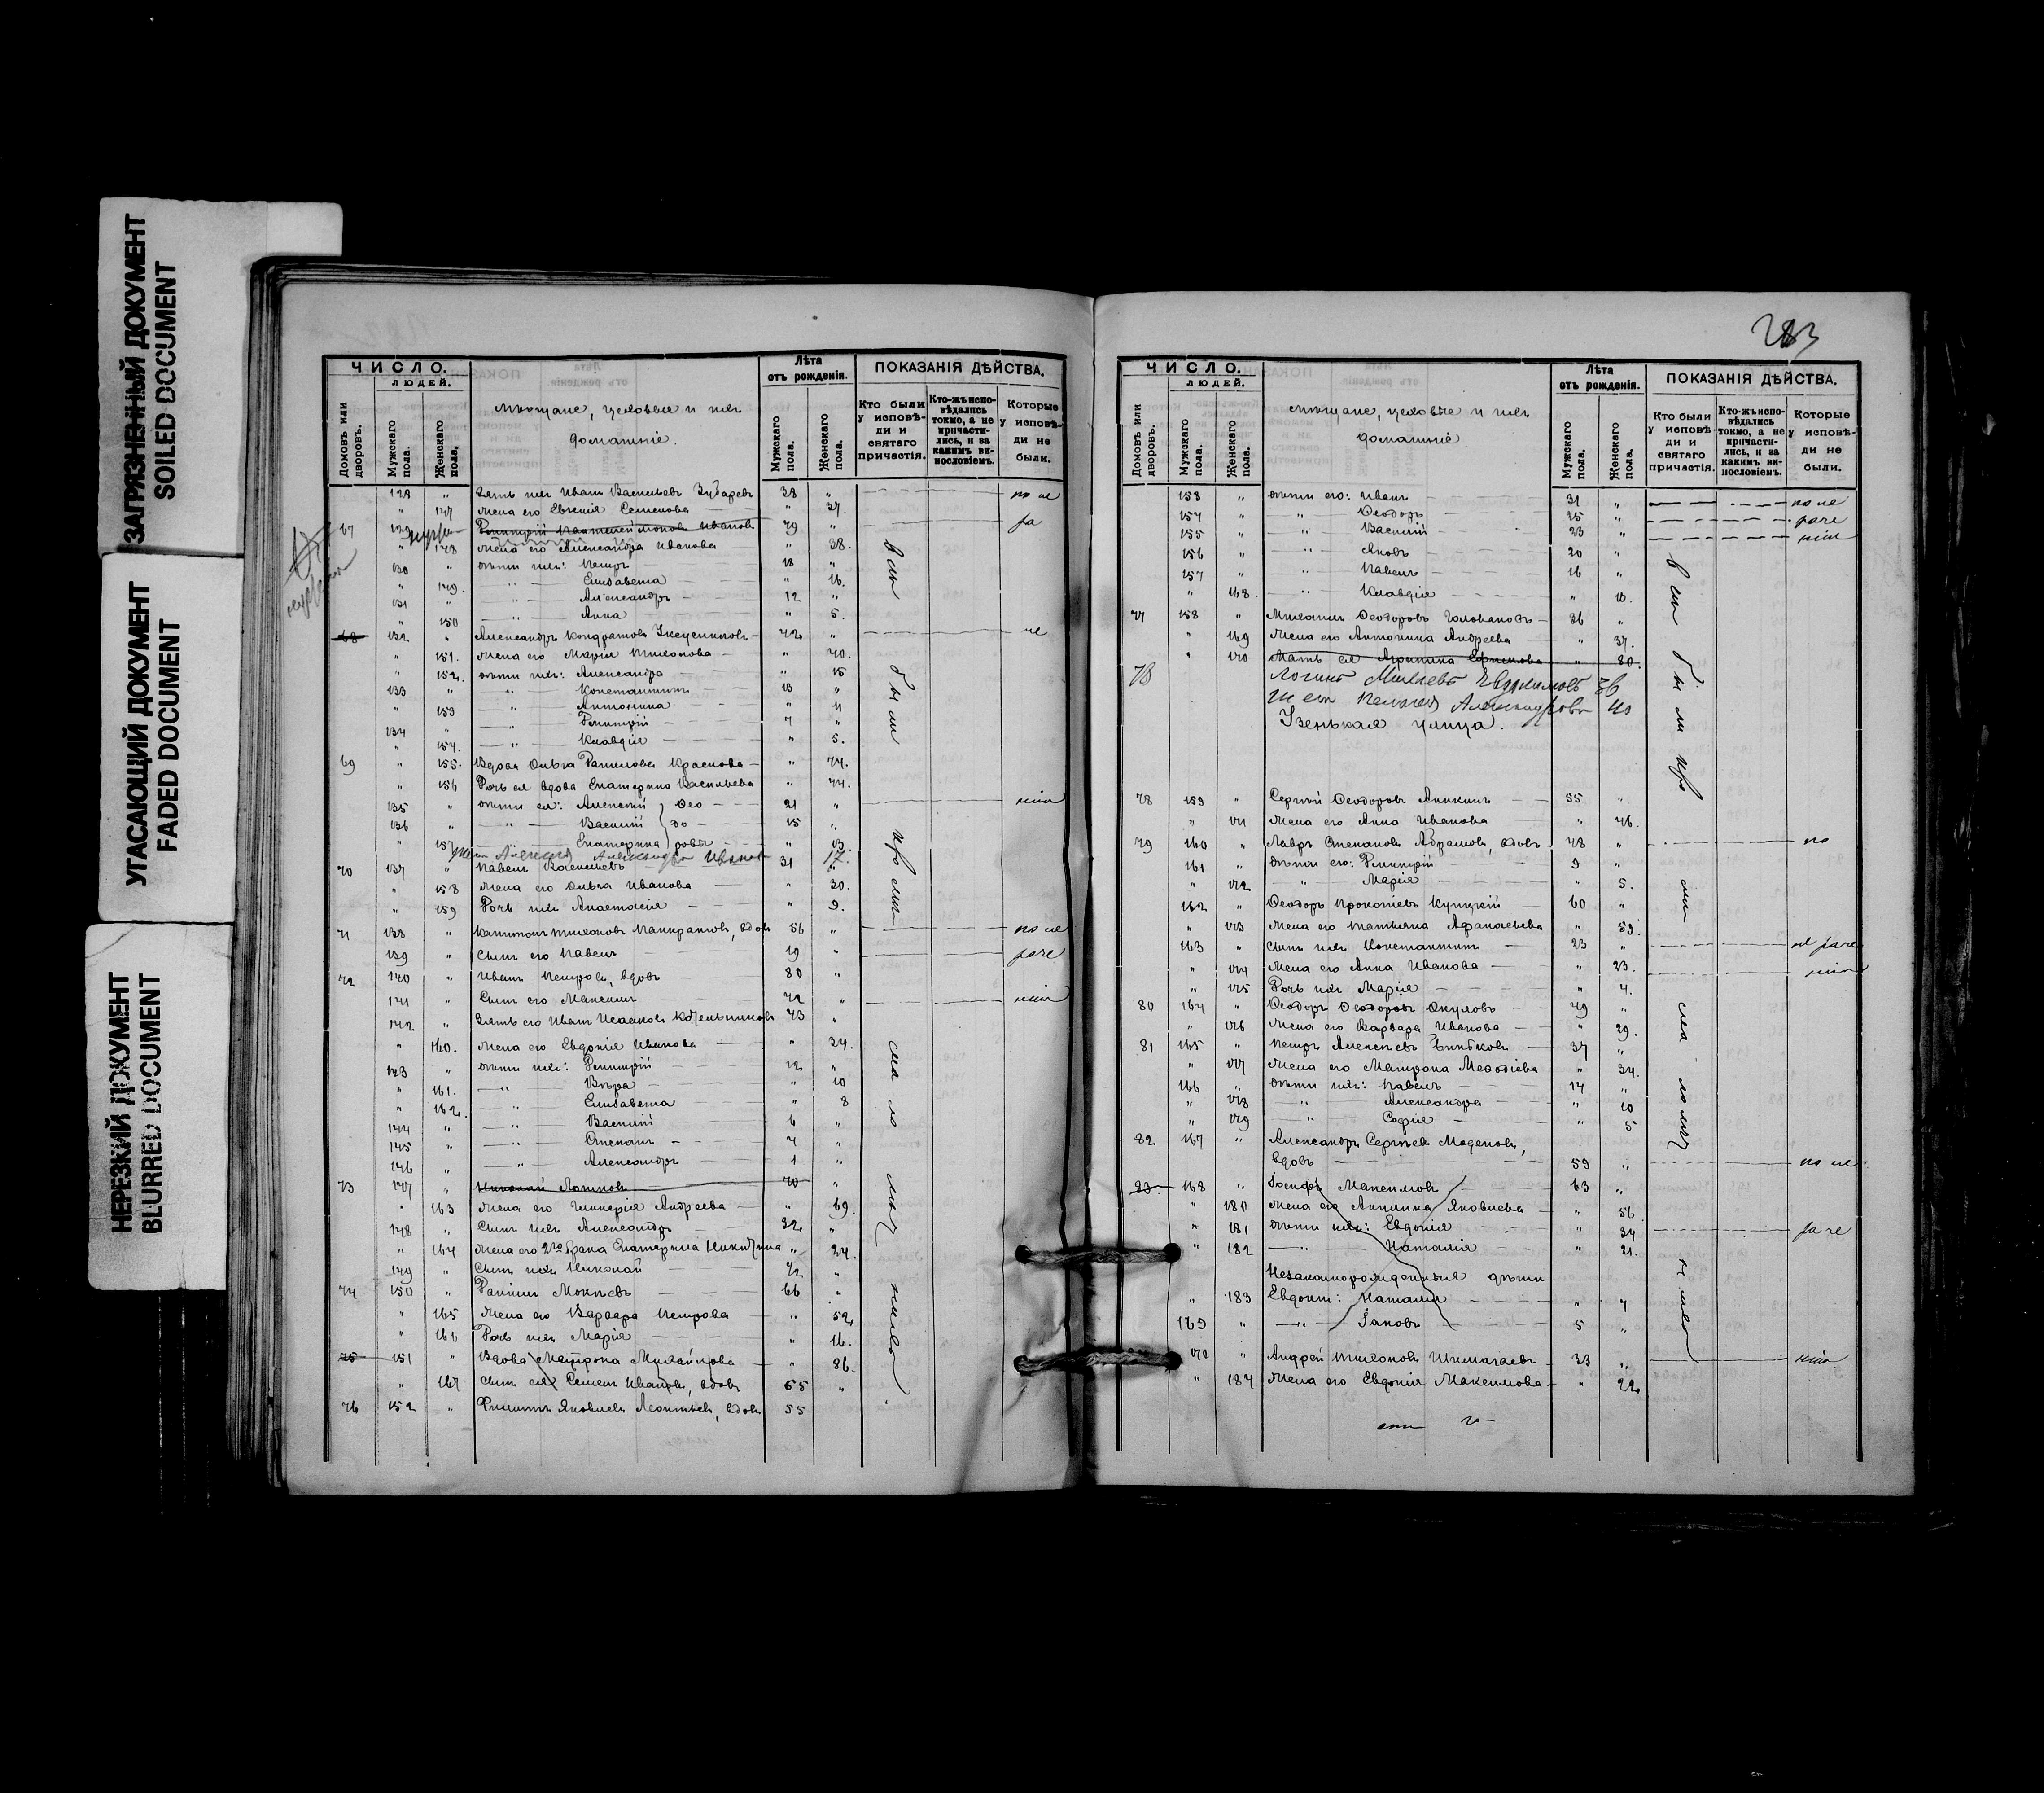 ЗАГРЯЗНЕННЫЙ ДОКУМЕНТ
SOILED DOCUMENT
УГАСАЮЩИЙ ДОКУМЕНТ
FADED DOCUMENT
НЕРЕЗКИЙ ДОКУМЕНТ
BLURRED DOCUMENT
ЧИСЛО.
ЛЮДЕЙ.
Домовъ или дворовъ.
Мужскаго пола.
Женскаго пола.
Мѣщане, цеховые и ихъ
домашніе.
Лѣта
отъ рожденія.
Мужскаго пола.
Женскаго пола.
ПОКАЗАНІЯ ДѢЙСТВА.
Кто были у исповѣди и святаго причастія.
Кто-жъ исповѣдались токмо, а не причастились, и за какимъ винословіемъ.
Которые у исповѣди не были.
128 " Зять ихъ Иванъ Васильевъ Зубаревъ 38 "
" 147 Жена его Евгенія Семенова " 37.
67 129 Димитрій Пантелеймоновъ Ивановъ 49 "
" 148 Жена его Александра Иванова " 38.
130 " Дѣти ихъ: Петръ 18 "
" 149. Елисавета " 16.
131 " Александръ 12 "
" 150 Анна " 5.
68 132 " Александръ Кондратовъ 42 "
" 151. Жена его Марія Тихонова " 40.
" 152. Дѣти ихъ: Александра " 15
133 " Константинъ 13 "
" 153 Антонина " 11
134 " Димитрій 7 "
" 154. Клавдія " 5.
69 " 155. Вдова Ольга Данилова Краснова " 74.
" 156 Дочь ея вдова Екатерина Васильева " 44.
135 " Дѣти ея: Алексѣй Ѳео 21 "
136 " Василій до 15 "
" 157 Екатерина ровы " 13.
Жена Алексѣя Александра Иванова 17.
70 137 " Павелъ Васильевъ 31 "
" 158 Жена его Ольга Иванова " 30.
" 159 Дочь ихъ Анастасія " 9.
71 138 " Капитонъ Тихоновъ Панкратовъ, вдовъ 56 "
139 " Сынъ его Павелъ 19 "
72 140 " Иванъ Петровъ, вдовъ 80 "
141 " Сынъ его Максимъ 42 "
142 " Зять его Иванъ Исааковъ Котельниковъ 43 "
" 160. Жена его Евдокія Иванова " 34.
143 " Дѣти ихъ: Димитрій 12 "
" 161. Вѣра " 10
" 162. Елисавета " 8
144 " Василій 6 "
145 " Степанъ 4 "
146 " Александръ 1 "
73 147 " Николай Логиновъ 70 "
" 163 Жена его Гликерія Андреева " 69.
148 " Сынъ ихъ Александръ 32 "
" 164 Жена его 2го брака Екатерина Никитина " 24.
149 " Сынъ ихъ Николай 1/2 "
74 150 " Даніилъ Мокѣевъ 66 "
" 165 Жена его Варвара Петрова " 52.
" 166 Дочь ихъ Марія " 16.
75 151 " Вдова Матрона Михайлова " 86.
" 167 Сынъ ея Семенъ Ивановъ, вдовъ 55 "
76 152 " Филиппъ Яковлевъ Леонтьевъ, вдовъ 55
были
283
ЧИСЛО.
ЛЮДЕЙ.
Домовъ или дворовъ.
Мужскаго пола.
Женскаго пола.
Мѣщане, цеховые и ихъ
домашніе
Лѣта
отъ рожденія.
Мужскаго пола.
Женскаго пола.
ПОКАЗАНІЯ ДѢЙСТВА.
Кто были у исповѣди и святаго причастія.
Кто-жъ исповѣдались токмо, а не причастились, и за какимъ винословіемъ.
Которые у исповѣди не были.
153 " Дѣти его: Иванъ 31 "
154 " Ѳеодоръ 25 "
155 " Василій 23 "
156 " Яковъ 20 "
157 " Павелъ 16 "
" 168. Клавдія " 10.
77 158 " Михаилъ Ѳеодоровъ Головановъ 36 "
" 169 Жена его Антонина Андреева " 37.
" 170 Мать ея Агрипина Ефимова " 80.
78 Логинъ Евдокимовъ 36
Жена Пелагея Александрова 40
Узенькая улица.
78 159 " Сергѣй Ѳеодоровъ Аникинъ 55 "
" 171 Жена его Анна Иванова " 46.
79 160 " Лавръ Степановъ Абрамовъ, вдовъ 48 "
161 " Дѣти его: Димитрій 9 "
" 172 Марія " 5.
162 " Ѳеодоръ Прокопіевъ Купцкій 60 "
" 173 Жена его Татьяна Афанасьева " 59.
163 " Сынъ ихъ Константинъ 23 "
" 174 Жена его Анна Иванова " 23.
" 175 Дочь ихъ Марія " 4.
80 164 " Ѳеодоръ Ѳеодоровъ Окуловъ 49 "
" 176 Жена его Варвара Иванова " 29.
81 165 " Петръ Алексѣевъ 37 "
" 177 Жена его Матрона Меѳодіева " 34.
166 " Дѣти ихъ: Павелъ 14 "
" 178 Александра " 10
" 179 Софія " 5
82 167 " Александръ Сергѣевъ Моденовъ,
вдовъ 59 "
83. 168 " Іосифъ Максимовъ 63 "
" 180 Жена его Акилина Яковлева " 56.
" 181 Дѣти ихъ: Евдокія " 34
" 182 Наталія " 21.
Незаконорожденныя дѣти
" 183 Евдокіи: Наталія " 7
169 " Іаковъ 5 "
170 " Андрей Тихоновъ Шишагаевъ 33 "
" 184 Жена его Евдокія Максимова " 22.